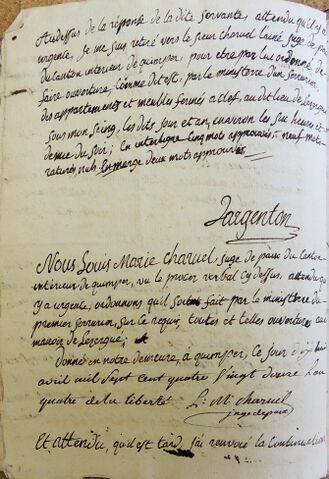 Au dessus de la réponse de la dite servante, attendu qu'il y a
urgence, Je me suis retiré vers le sieur charuel Lainé juge de paix
du canton intérieur de quimper, pour être par lui ordonné de
faire ouverture, Comme dit est, par le ministère d'un serrurier,
des appartements et meubles fermés a clef, au dit lieu de Lesergue
sous mon seing, les dits jour et an, environ les six heures et
demie du soir; En interligne cinq mots approuvés, neuf mots
raturés nuls En marge deux mots approuvés
Jargenton
Nous Louis Marie Charuel juge de paix du Canton
intérieur de quimper, vu le procès verbal cy dessus, attendu qu'il
y a urgence, ordonnons qu'il soit fait par le ministère du
premier serrurier, sur ce requis, toutes et telles ouvertures au
manoir de Lesergue;
Donné en notre demeure, a quimper, ce jour
avril mil sept cent quatre vingt douze L'an
quatre de la liberté L: M: charuel
juge de paix
Et attendu, qu'il est tard, j'ai renvoyé la Continuation